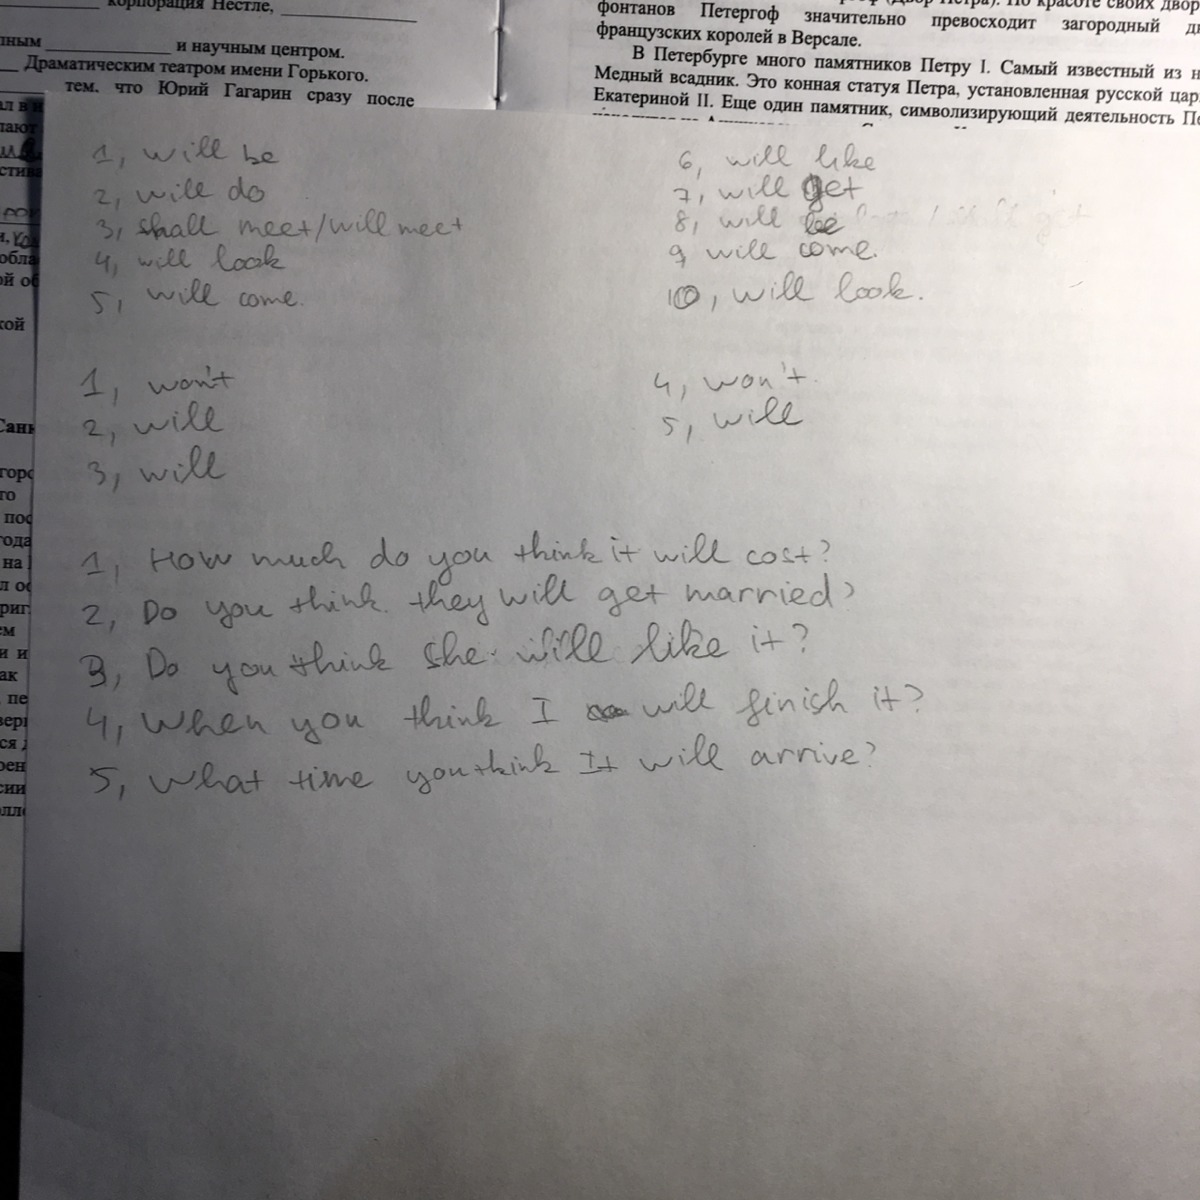 корпорация Нестле,
и научным центром.
Драматическим театром имени Горького.
тем, что Юрий Гагарин сразу после
фонтанов Петергоф значительно превосходит загородный
французских королей в Версале.
В Петербурге много памятников Петру I. Самый известный из
Медный всадник. Это конная статуя Петра, установленная русской
Екатериной II. Еще один памятник, символизирующий деятельность
1, will be
2, will do
3, shall meet/will meet
4, will look
5, will come.
6, will like
7, will get
8, will be
9, will come.
10, will look.
1, won't
2, will
3, will
4, won't.
5, will
1, How much do you think it will cost?
2, Do you think. they will get married?
3, Do you think she will like it?
4, When you think I will finish it?
5, What time you think It will arrive?